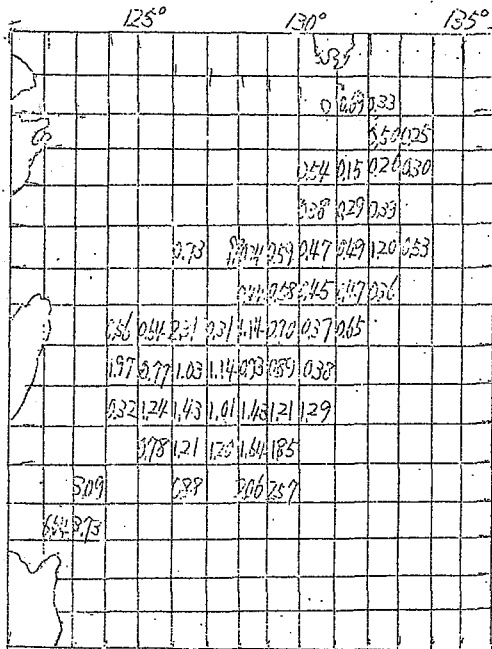 125° 130° 135°
0 0.69 0.33
0.50 0.25
0.54 0.15 0.26 0.30
0.38 0.29 0.39
0.73 0.59 0.47 0.49 1.20 0.53
0.58 0.45 0.36
0.56 0.64 2.31 0.31 1.14 0.70 0.37 0.65
1.97 0.77 1.03 1.14 0.93 0.89 0.38
0.32 1.24 1.43 1.01 1.43 1.21 1.29
0.78 1.21 1.20 1.64 1.85
3.09 0.88 3.06 2.57
3.73